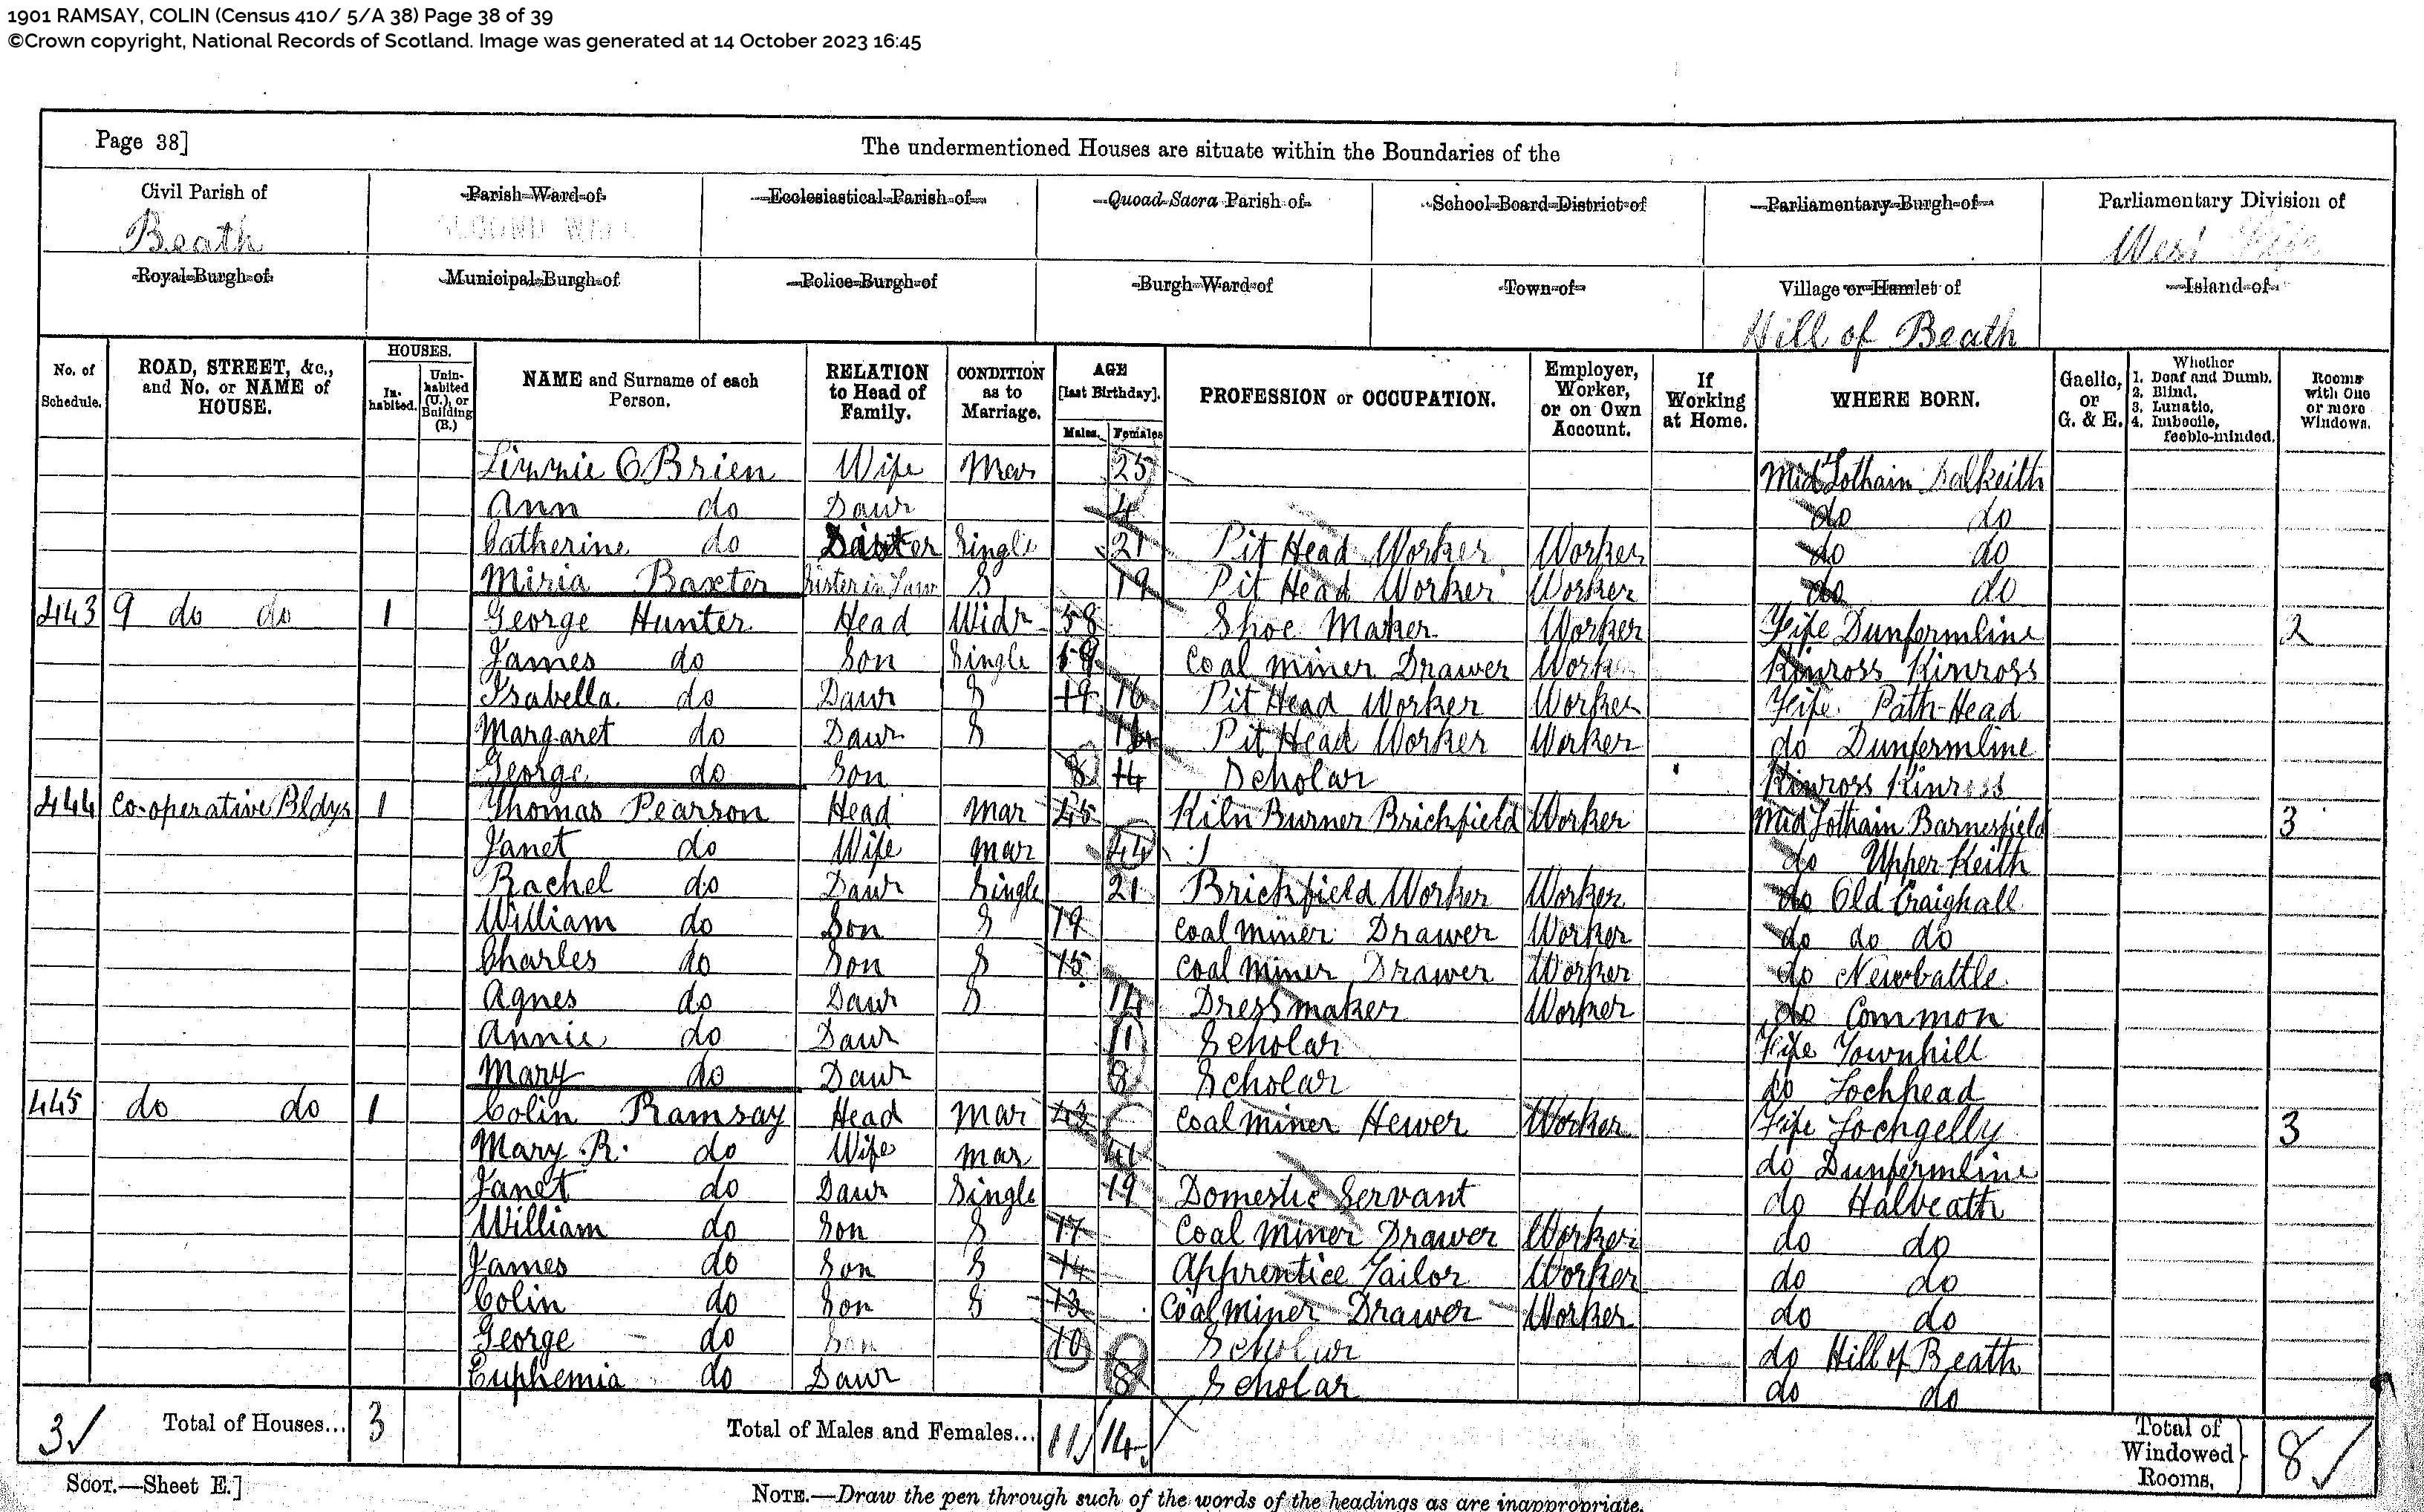 1901 RAMSAY, COLIN (Census 410/ 5/A 38) Page 38 of 39
©Crown copyright, National Records of Scotland. Image was generated at 14 October 2023 16:45
Page 38]
The undermentioned Houses are situate within the Boundaries of the
Civil Parish of Parish Ward of Ecclesiastical Parish of Quoad Sacra Parish of School Board District of Parliamentary Burgh of Parliamentary Division of
Beath West Fife
Royal Burgh of Municipal Burgh of Police Burgh of Burgh Ward of Town of Village or Hamlet of Island of
Hill of Beath
No. of Schedule. ROAD, STREET, &c., and No. or NAME of HOUSE. HOUSES. Inhabited. Uninhabited (U.), or Building (B.) NAME and Surname of each Person. RELATION to Head of Family. CONDITION as to Marriage. AGE [last Birthday]. Males. Females PROFESSION or OCCUPATION. Employer, Worker, or on Own Account. If Working at Home. WHERE BORN. Gaelic, or G. & E. Whether 1. Deaf and Dumb. 2. Blind. 3. Lunatic, 4. Imbecile, feeble-minded. Rooms with One or more Windows.
OBrien Wife Mar 25 Mid Lothain Dalkeith
Ann do Dawr 4 do do
Catherine do Sister Single 21 Pit Head Worker Worker do do
Miria Baxter Sister in Law S 19 Pit Head Worker Worker do do
443 9 do do 1 George Hunter Head Widr 58 Shoe Maker Worker Fife Dunfermline 2
James do Son Single 19 Coal miner Drawer Worker Kinross Kinross
Isabella do Dawr S 19 16 Pit Head Worker Worker Fife Path-Head
Margaret do Dawr S Pit Head Worker Worker do Dunfermline
George do Son 8 14 Scholar Kinross Kinross
444 Co-operative Bldgs 1 Thomas Pearson Head Mar 45 Kiln Burner Brickfield Worker Mid Lothain Barnesfield 3
Janet do Wife Mar 44 do Upper Keith
Rachel do Dawr Single 21 Brickfield Worker Worker do Old Craighall
William do Son S 19 Coal miner Drawer Worker do do do
Charles do Son S 15 Coal Miner Drawer Worker do Newbattle
Agnes do Dawr S 14 Dressmaker Worker do Common
Annie do Dawr 11 Scholar Fife Townhill
Mary do Dawr 8 Scholar do Lochhead
445 do do 1 Colin Ramsay Head Mar 43 Coal Miner Hewer Worker Fife Lochgelly 3
Mary R. do Wife Mar 41 do Dunfermline
Janet do Dawr Single 19 Domestic Servant do Halbeath
William do Son S 17 Coal Miner Drawer Worker do do
James do Son S 14 Apprentice Tailor Worker do do
Colin do Son S 13 Coal miner Drawer Worker do do
George do Son 10 Scholar do Hill of Beath
Euphemia do Dawr 8 Scholar do do
3 Total of Houses... 3 Total of Males and Females... 11 14 Total of Windowed Rooms, 8
SCOT.—Sheet E.]
NOTE.—Draw the pen through such of the words of the headings as are inappropriate.